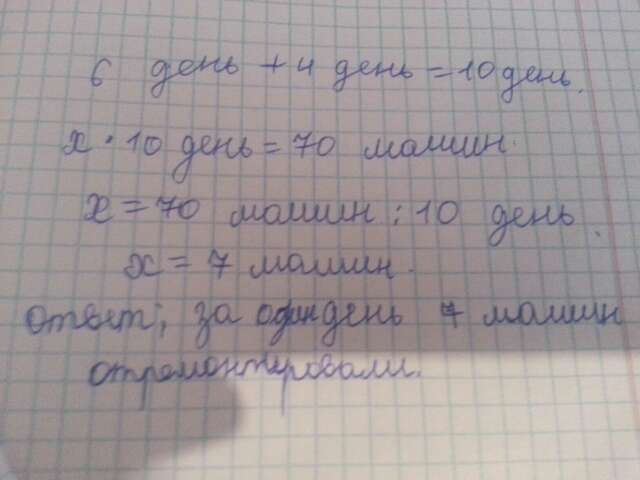 6 день + 4 день = 10 день.
x · 10 день = 70 машин.
x = 70 машин : 10 день.
x = 7 машин.
ответ; за один день 7 машин
отремонтировали.